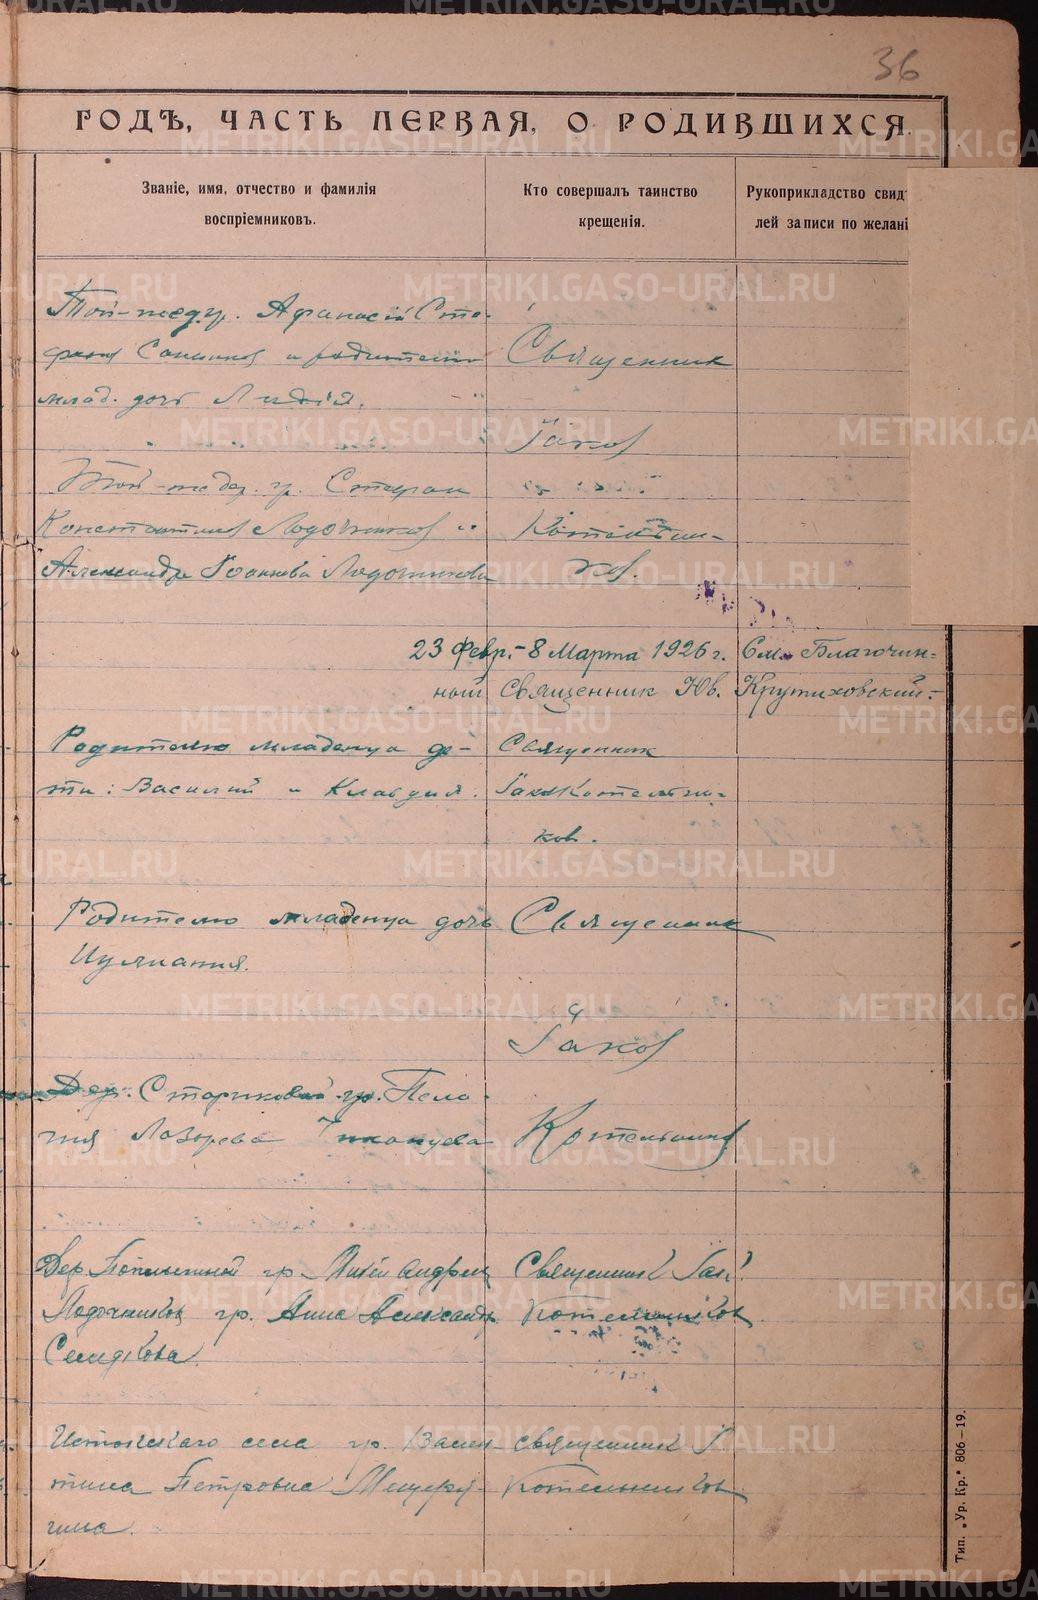 36
ГОДЪ, ЧАСТЬ ПЕРВАЯ, О РОДИВШИХСЯ.
Званіе, имя, отчество и фамилія
воспріемниковъ.
Кто совершалъ таинство
крещенія.
Рукоприкладство свид
лей записи по желані
Той-же д. гр. Афанасій Сте-
и родителя
млад. дочь Лидія.
Священник
Іаков
Той-же дер. гр. Стефан
Константинов Лодочников и
Александра Іоаннова Лодочникова
Котельни-
ков.
23 Февр.-8 Марта 1926 г. См. Благочин-
ный Священник Юв. Крутиховский-
Родителю младенца де-
ти: Василий и Клавдия.
Священник
Іаков Котельни-
ков.
Родителю младенца дочь
Иулиания.
Священник
Іаков
Котельников
Дер. Стариковой гр. Пела-
гия Лазарева
Дер. гр. Андреев
Лодочников гр. Анна Александр.
Семакова.
Священник Іак.
Котельников
Истокскаго села гр. Вален-
тина Петровна Мещеря-
гина.
священник І
Котельников
Тип. „Ур. Кр.“ 806—19.
METRIKI.GASO-URAL.RU